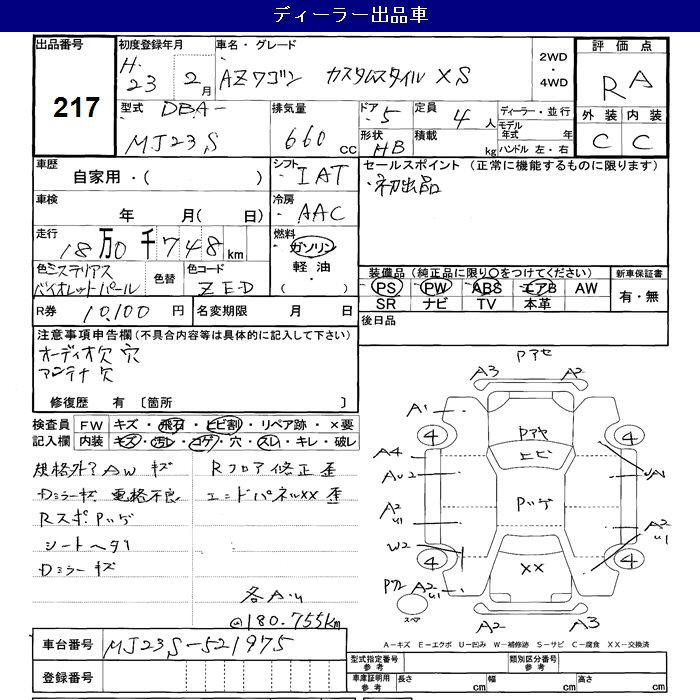 ディーラー出品車
出品番号
217
初度登録年月
H.
23 2 月
車名・グレード
AZワゴン カスタムスタイル XS
2WD
・
4WD
評価点
R A
外装 内装
C C
型式 DBA-
MJ23S
排気量
660 cc
ドア 5
形状 HB
定員 4 人
積載 kg
ディーラー・並行
モデル
年式 年
ハンドル 左・右
車歴
自家用・( )
シフト IAT
セールスポイント (正常に機能するものに限ります)
・初出品
車検
年 月( 日)
冷房
AAC
走行
18万0千748km
燃料
ガソリン
軽油
( )
色 ミステリアス
バイオレットパール
色替
色コード
ZED
装備品(純正品に限り○をつけてください)
PS PW ABS エアB AW
SR ナビ TV 本革
新車保証書
有・無
R券 10,100 円
名変期限 月 日
後日品
注意事項申告欄(不具合内容等は具体的に記入して下さい)
オーディオ欠 穴
アンテナ 欠
修復歴 有 [箇所 ]
検査員
記入欄
FW キズ・飛石・ヒビ割・リペア跡・×要
内装 キズ・汚レ・コゲ・穴・スレ・キレ・破レ
規格外?AW キズ
Dミラーキズ 電格不良
Rスポ Pハゲ
シートヘタリ
Dミラーキズ
Rフロア修正 歪
エンドパネルXX 歪
各AU
@180.755km
Pアセ
A3 A2
A1
4 4
Pアセ
ヒビ
A4
AU2
Pハゲ
A2
U1
A2
U1
W2
4 4
XX
A2
U1
スペア
A2 A3
A-キズ E-エクボ U-凹み W-補修跡 S-サビ C-腐食 XX-交換済
車台番号 MJ23S-521975
登録番号
型式指定番号
参考
類別区分番号
参考
車庫証明用
参考
長さ cm 幅 cm 高さ cm